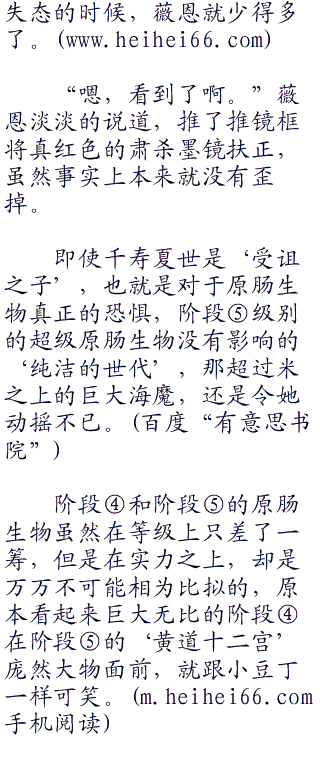 失态的时候，薇恩就少得多
了。(www.heihei66.com)
“嗯，看到了啊。”薇
恩淡淡的说道，推了推镜框
将真红色的肃杀墨镜扶正，
虽然事实上本来就没有歪
掉。
即使千寿夏世是‘受诅
之子’，也就是对于原肠生
物真正的恐惧，阶段⑤级别
的超级原肠生物没有影响的
‘纯洁的世代’，那超过米
之上的巨大海魔，还是令她
动摇不已。(百度“有意思书
院”)
阶段④和阶段⑤的原肠
生物虽然在等级上只差了一
筹，但是在实力之上，却是
万万不可能相为比拟的，原
本看起来巨大无比的阶段④
在阶段⑤的‘黄道十二宫’
庞然大物面前，就跟小豆丁
一样可笑。(m.heihei66.com
手机阅读)